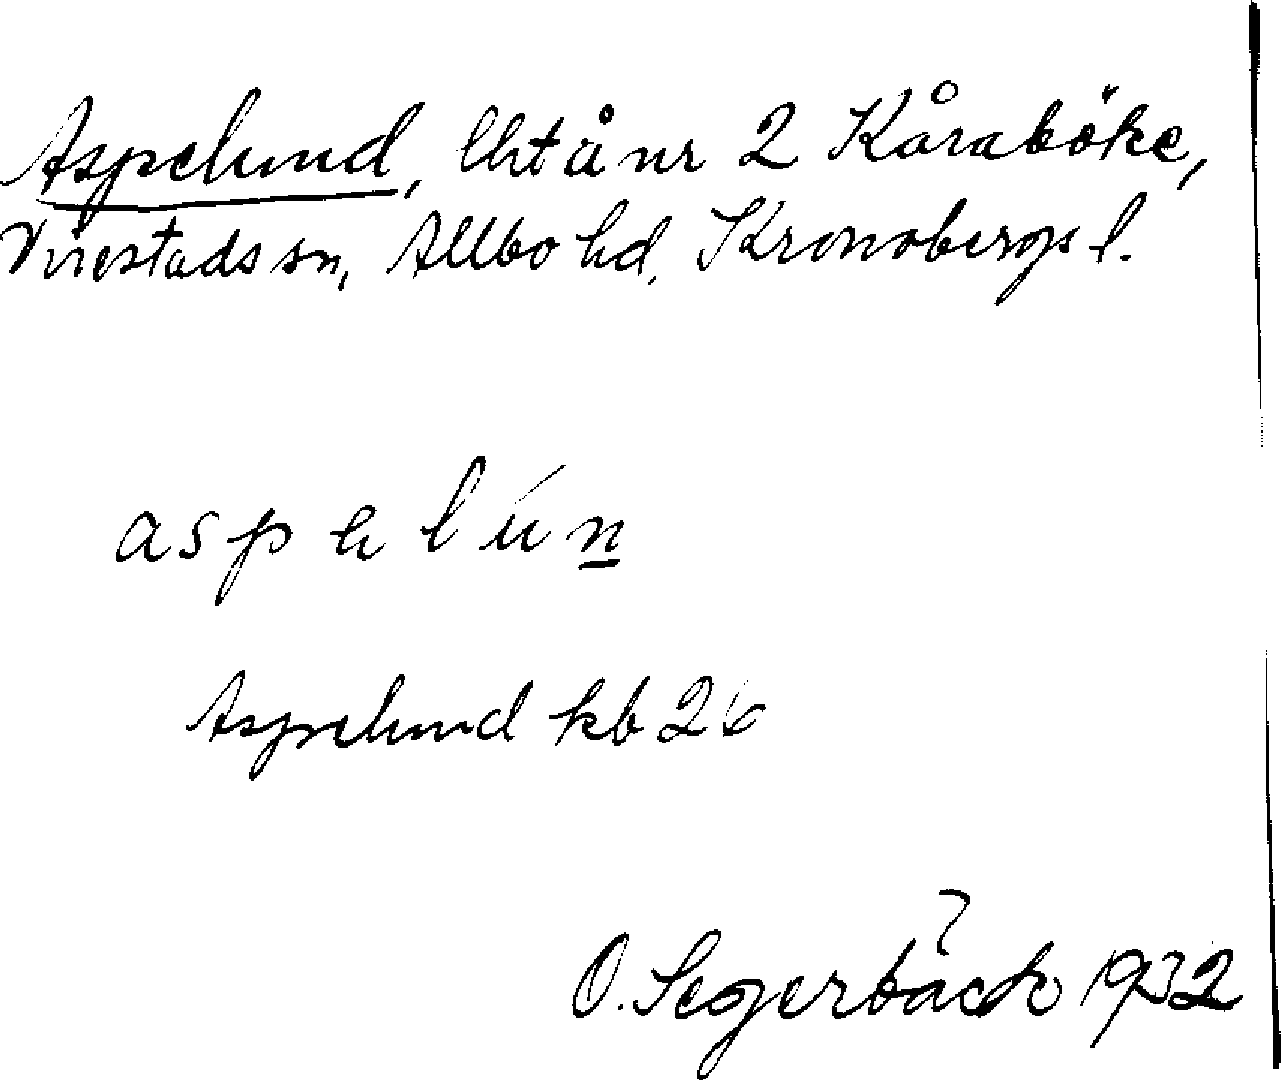 Aspelund, lht å nr 2 Kåraböke,
Virestads sn, Allbo hd, Kronobergs l.
aspəlún
Aspelund kb 26
O. Segerbäck 1932